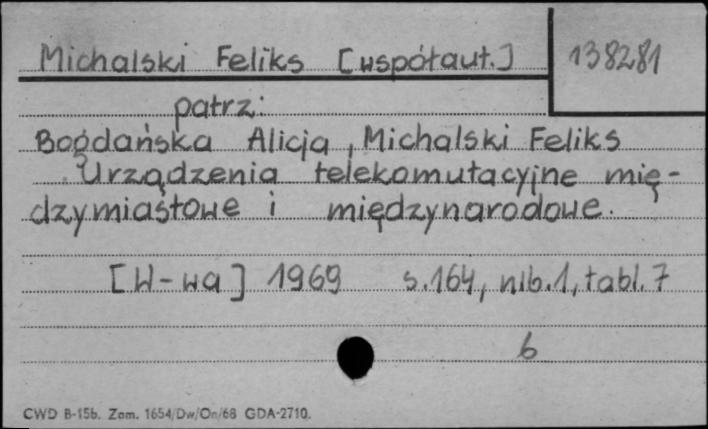 Michalski Feliks [współaut.] 138281
patrz:
Bogdańska Alicja, Michalski Feliks
Urządzenia telekomutacyjne mię-
dzymiastowe i międzynarodowe.
[W-wa] 1969 s.164, nlb.1, tabl.7
6
CWD B-15b. Zam. 1654/Dw/On/68 GDA-2710.